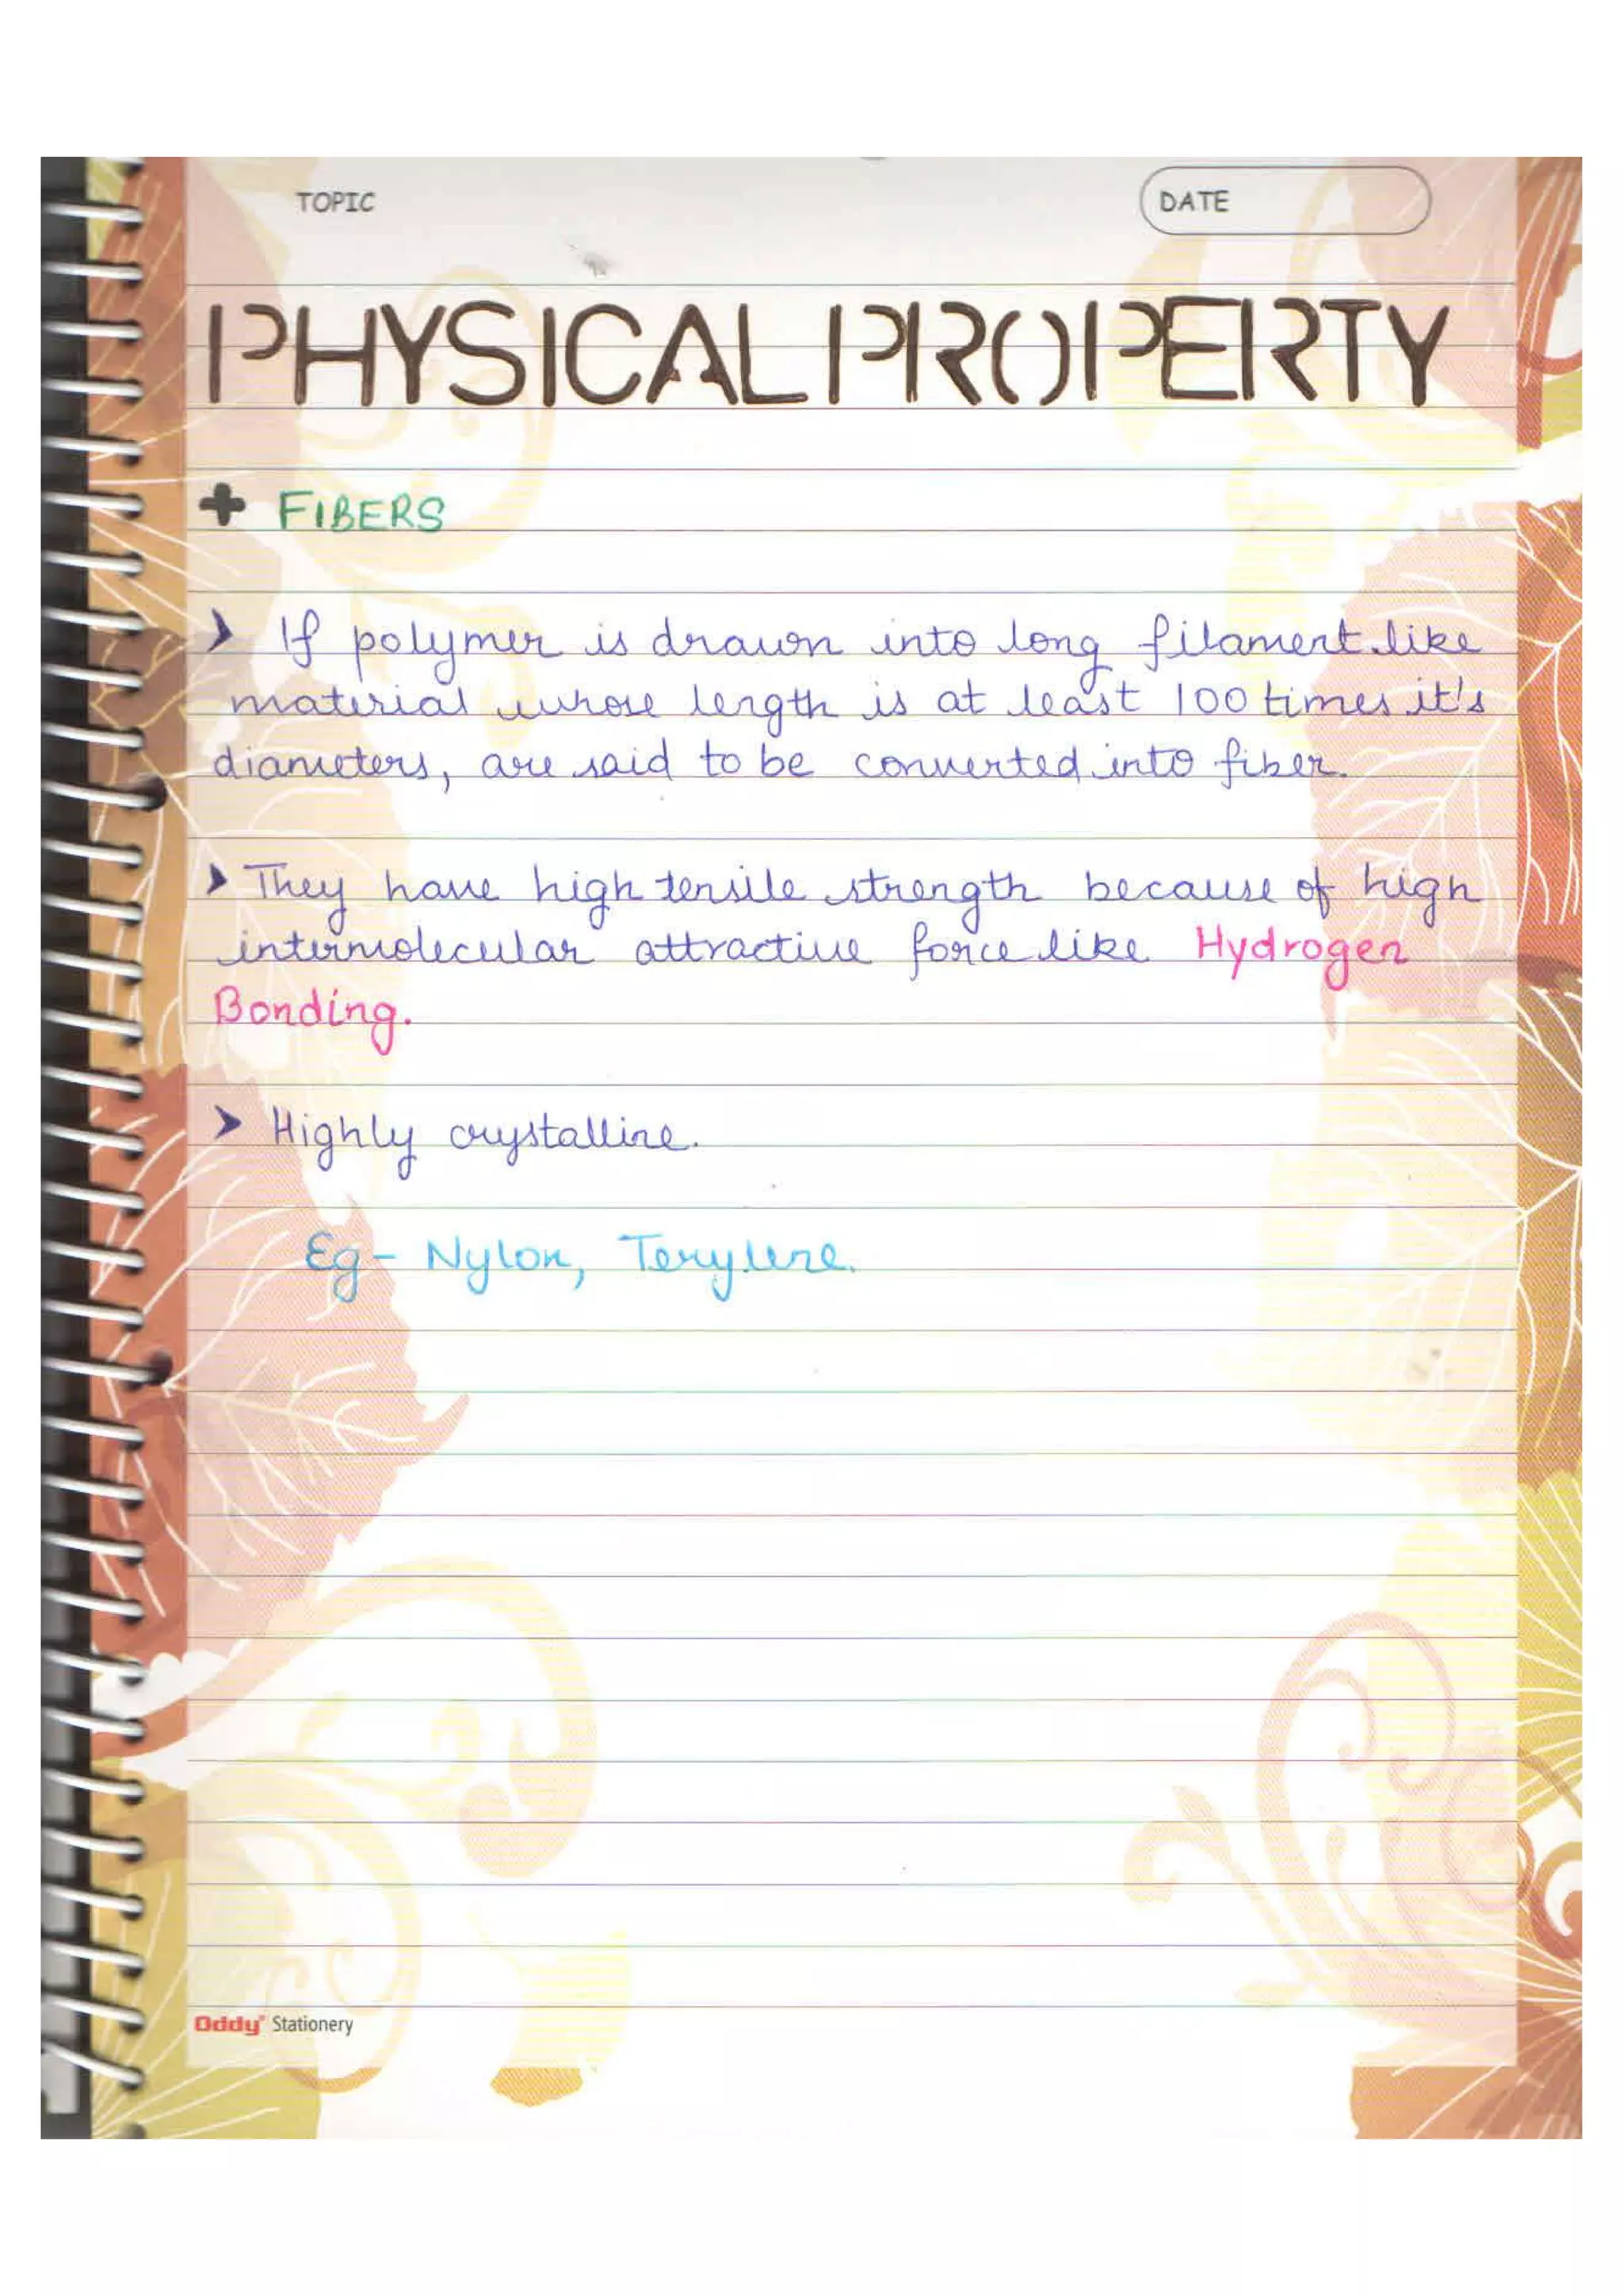 TOPIC
DATE
PHYSICAL PROPERTY
+ FIBERS
> If polymer is drawn into long filament like
material whose length is at least 100 times it's
diameters, are said to be converted into fiber.
> They have high tensile strength because of high
intermolecular attractive force like Hydrogen
Bonding.
> Highly crystalline.
Eg - Nylon, Terylene.
Oddy Stationery